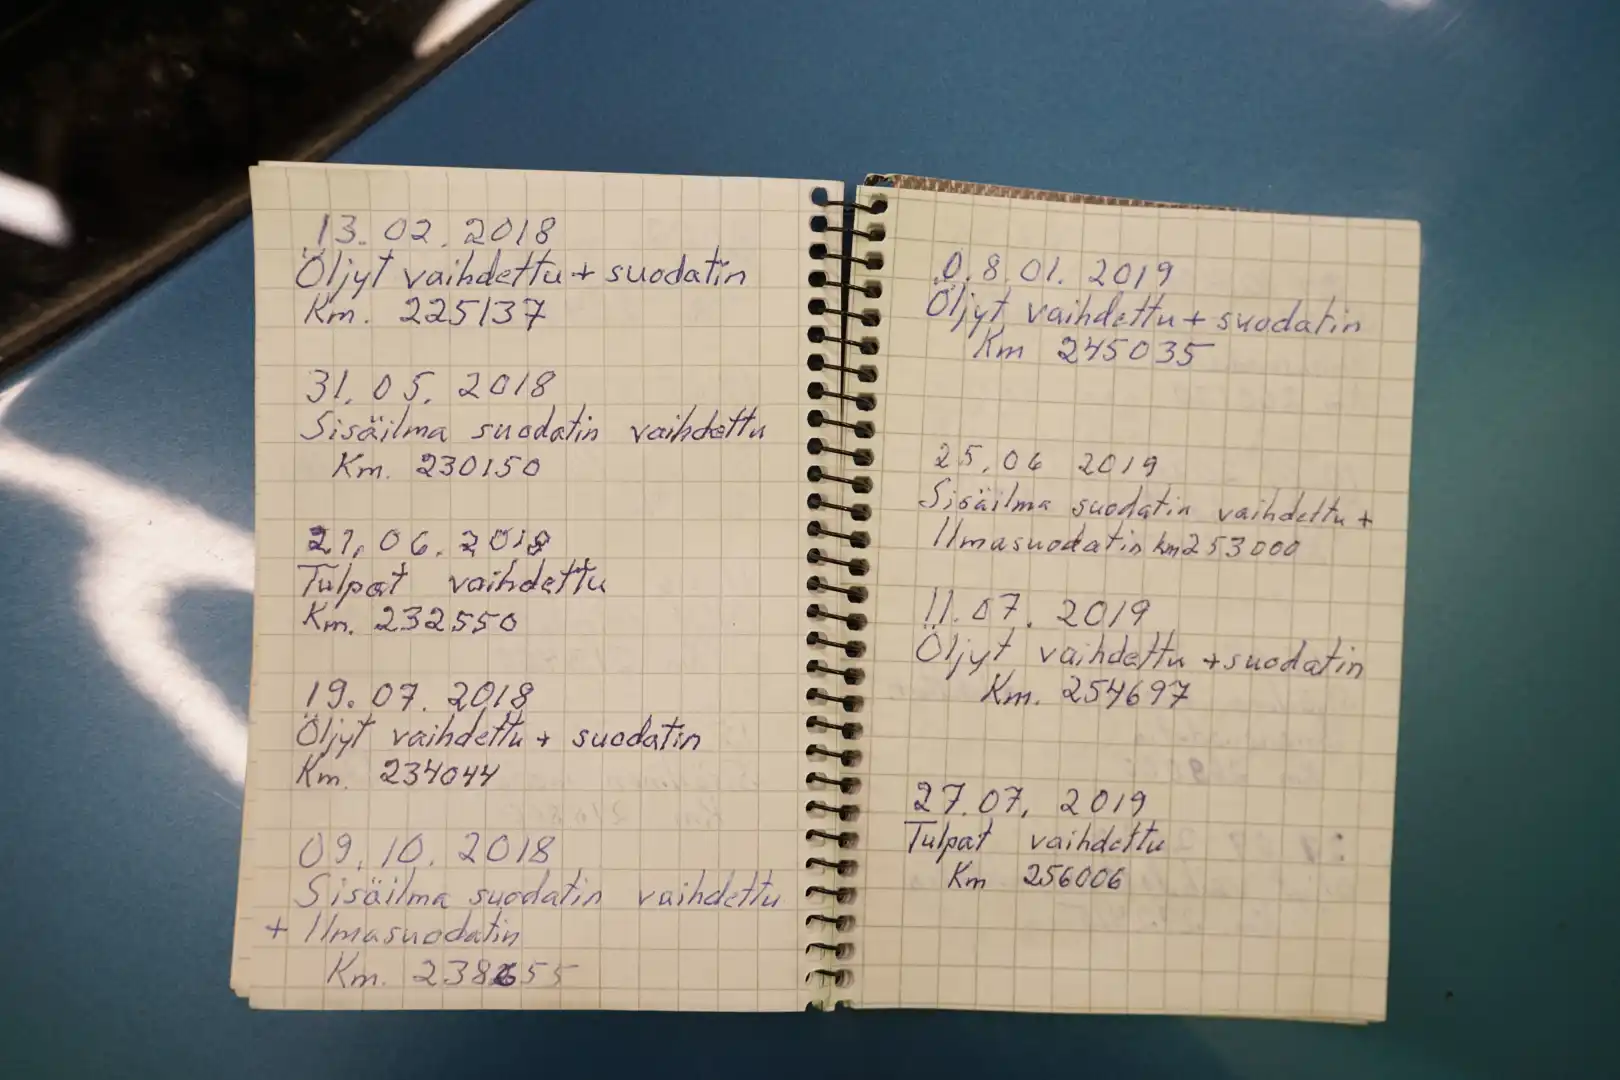 13.02.2018
Öljyt vaihdettu + suodatin
Km. 225137
31.05.2018
Sisäilma suodatin vaihdettu
Km. 230150
21.06.2018
Tulpat vaihdettu
Km. 232550
19.07.2018
Öljyt vaihdettu + suodatin
Km. 234044
09.10.2018
Sisäilma suodatin vaihdettu
+ Ilmasuodatin
Km. 238655
0.8.01.2019
Öljyt vaihdettu + suodatin
Km 245035
25.06 2019
Sisäilma suodatin vaihdettu +
Ilmasuodatin km 253000
11.07.2019
Öljyt vaihdettu + suodatin
Km. 254697
27.07.2019
Tulpat vaihdettu
Km 256006